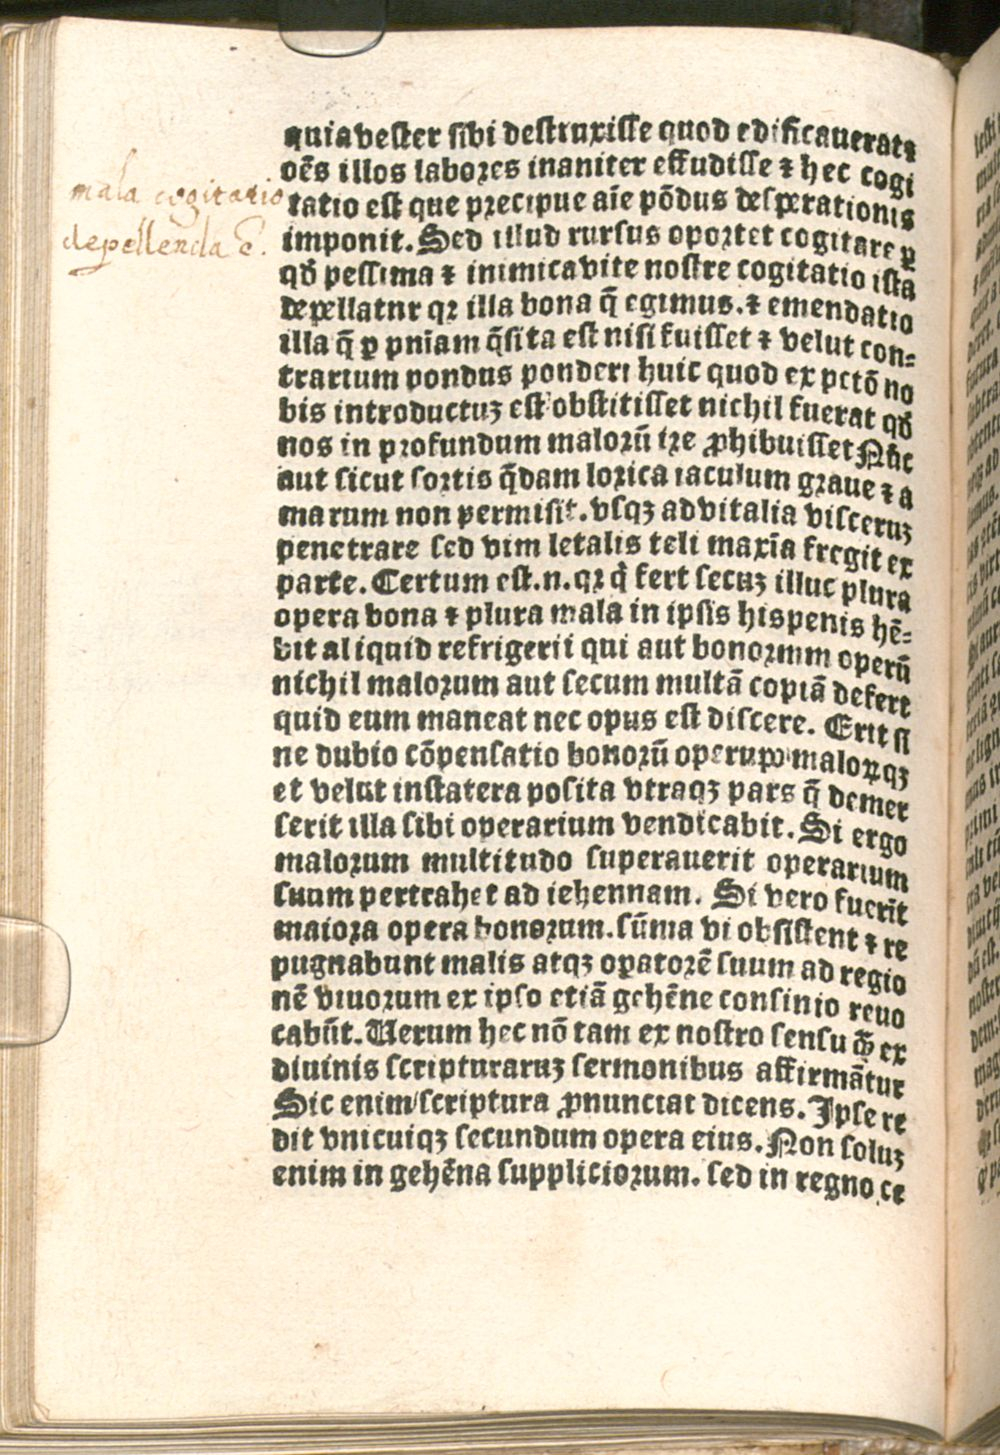 mala cogitatio
depellenda ē.
quia vester sibi destruxisse quod edificauerat ⁊
oēs illos labores inaniter effudisse ⁊ hec cogi
tatio est que precipue aīe pōdus desperationis
imponit. Sed illud rursus oportet cogitare ꝑ
qđ pessima ⁊ inimica vite nostre cogitatio ista
depellatur qꝛ illa bona q̄ egimus. ⁊ emendatio
illa q̄ ꝑ pniam q̄sita est nisi fuisset ⁊ velut con⸗
trarium pondus ponderi huic quod ex pctō no
bis introductuꝫ est obstitisset nichil fuerat qđ
nos in profundum malorū ire ꝓhibuisset Nūc
aut sicut fortis q̄dam lorica iaculum graue ⁊ a
marum non permisit. vsqꝫ ad vitalia visceruꝫ
penetrare sed vim letalis teli maxīa fregit ex
parte. Certum est .n. qꝛ q̇ fert secuꝫ illuc plura
opera bona ⁊ plura mala in ipsis hispenis hē⸗
bit aliquid refrigerii qui aut bonornm operū
nichil malorum aut secum multā copiā defert
quid eum maneat nec opus est discere. Erit si
ne dubio cōpensatio bonorū operuꝝ maloꝝqꝫ
et velut in statera posita vtraqꝫ pars q̄ demer
serit illa sibi operarium vendicabit. Si ergo
malorum multitudo superauerit operarium
suum pertrahet ad iehennam. Si vero fuerīt
maiora opera bonorum. sūma vi obsistent ⁊ re
pugnabunt malis atqꝫ oꝑatorē suum ad regio
nē viuorum ex ipso etiā gehēne confinio reuo
cabūt. Uerum hec nō tam ex nostro sensu ꝙ̄ ex
diuinis scripturaruꝫ sermonibus affirmātur
Sic enim scriptura ꝓnunciat dicens. Ipse re
dit vnicuiqꝫ secundum opera eius. Non soluꝫ
enim in gehēna suppliciorum. sed in regno ce